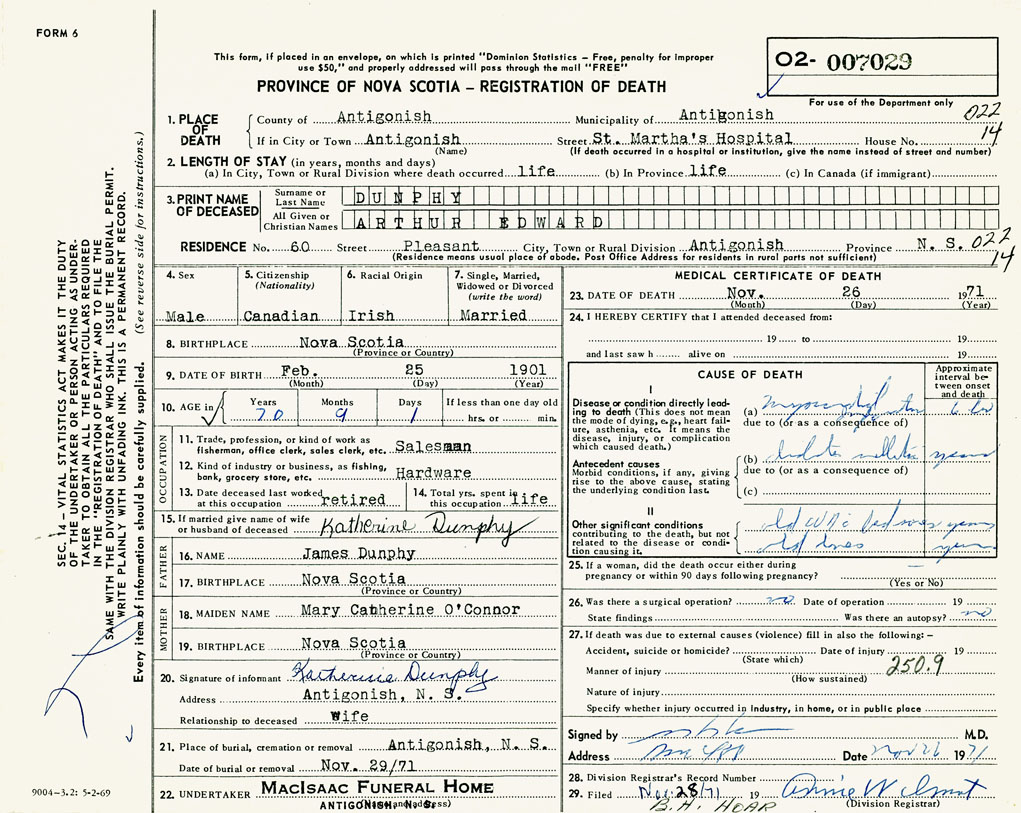 FORM 6
This form, if placed in an envelope, on which is printed "Dominion Statistics – Free, penalty for improper
use $50," and properly addressed will pass through the mail "FREE"
PROVINCE OF NOVA SCOTIA – REGISTRATION OF DEATH
02- 007029
For use of the Department only
022
14
1. PLACE OF DEATH
County of Antigonish Municipality of Antigonish
If in City or Town Antigonish Street St. Martha's Hospital House No.
(Name) (If death occurred in a hospital or institution, give the name instead of street and number)
2. LENGTH OF STAY (in years, months and days)
(a) In City, Town or Rural Division where death occurred life (b) In Province life (c) In Canada (if immigrant)
3. PRINT NAME OF DECEASED
Surname or Last Name DUNPHY
All Given or Christian Names ARTHUR EDWARD
RESIDENCE No. 60 Street Pleasant City, Town or Rural Division Antigonish Province N. S. 022
(Residence means usual place of abode. Post Office Address for residents in rural parts not sufficient) 14
4. Sex
Male
5. Citizenship (Nationality)
Canadian
6. Racial Origin
Irish
7. Single, Married, Widowed or Divorced (write the word)
Married
8. BIRTHPLACE Nova Scotia
(Province or Country)
9. DATE OF BIRTH Feb. 25 1901
(Month) (Day) (Year)
10. AGE in Years Months Days If less than one day old
70 9 1 hrs. or min.
OCCUPATION
11. Trade, profession, or kind of work as
fisherman, office clerk, sales clerk, etc. Salesman
12. Kind of industry or business, as fishing,
bank, grocery store, etc. Hardware
13. Date deceased last worked at this occupation retired
14. Total yrs. spent in this occupation life
15. If married give name of wife
or husband of deceased Katherine Dunphy
FATHER
16. NAME James Dunphy
17. BIRTHPLACE Nova Scotia
(Province or Country)
MOTHER
18. MAIDEN NAME Mary Catherine O'Connor
19. BIRTHPLACE Nova Scotia
(Province or Country)
20. Signature of informant Katherine Dunphy
Address Antigonish, N. S.
Relationship to deceased Wife
21. Place of burial, cremation or removal Antigonish, N. S.
Date of burial or removal Nov. 29/71
22. UNDERTAKER MacIsaac Funeral Home
ANTIGONISH, N. S.
(Name and address)
MEDICAL CERTIFICATE OF DEATH
23. DATE OF DEATH Nov. 26 1971
(Month) (Day) (Year)
24. I HEREBY CERTIFY that I attended deceased from:
19 to 19
and last saw h alive on 19
CAUSE OF DEATH
Approximate interval between onset and death
I
Disease or condition directly leading to death (This does not mean the mode of dying, e.g., heart failure, asthenia, etc. It means the disease, injury, or complication which caused death.)
(a)
due to (or as a consequence of)
Antecedent causes
Morbid conditions, if any, giving rise to the above cause, stating the underlying condition last.
(b) years
due to (or as a consequence of)
(c)
II
Other significant conditions contributing to the death, but not related to the disease or condition causing it.
years
years
25. If a woman, did the death occur either during
pregnancy or within 90 days following pregnancy? –
(Yes or No)
26. Was there a surgical operation? no Date of operation 19
State findings Was there an autopsy? no
27. If death was due to external causes (violence) fill in also the following: –
Accident, suicide or homicide? Date of injury 19
(State which)
Manner of injury 250.9
(How sustained)
Nature of injury
Specify whether injury occurred in industry, in home, or in public place
Signed by M.D.
Address Date Nov 26 1971
28. Division Registrar's Record Number
29. Filed Nov. 28/71 19 Annie Wilmot
B. A. HOAR (Division Registrar)
SEC. 14 – VITAL STATISTICS ACT MAKES IT THE DUTY
OF THE UNDERTAKER OR PERSON ACTING AS UNDERTAKER
TO OBTAIN ALL THE PARTICULARS REQUIRED
IN THE "REGISTRATION OF DEATH" AND TO FILE THE
SAME WITH THE DIVISION REGISTRAR WHO SHALL ISSUE THE BURIAL PERMIT.
WRITE PLAINLY WITH UNFADING INK. THIS IS A PERMANENT RECORD.
Every item of information should be carefully supplied. (See reverse side for instructions.)
9004-3.2: 5-2-69